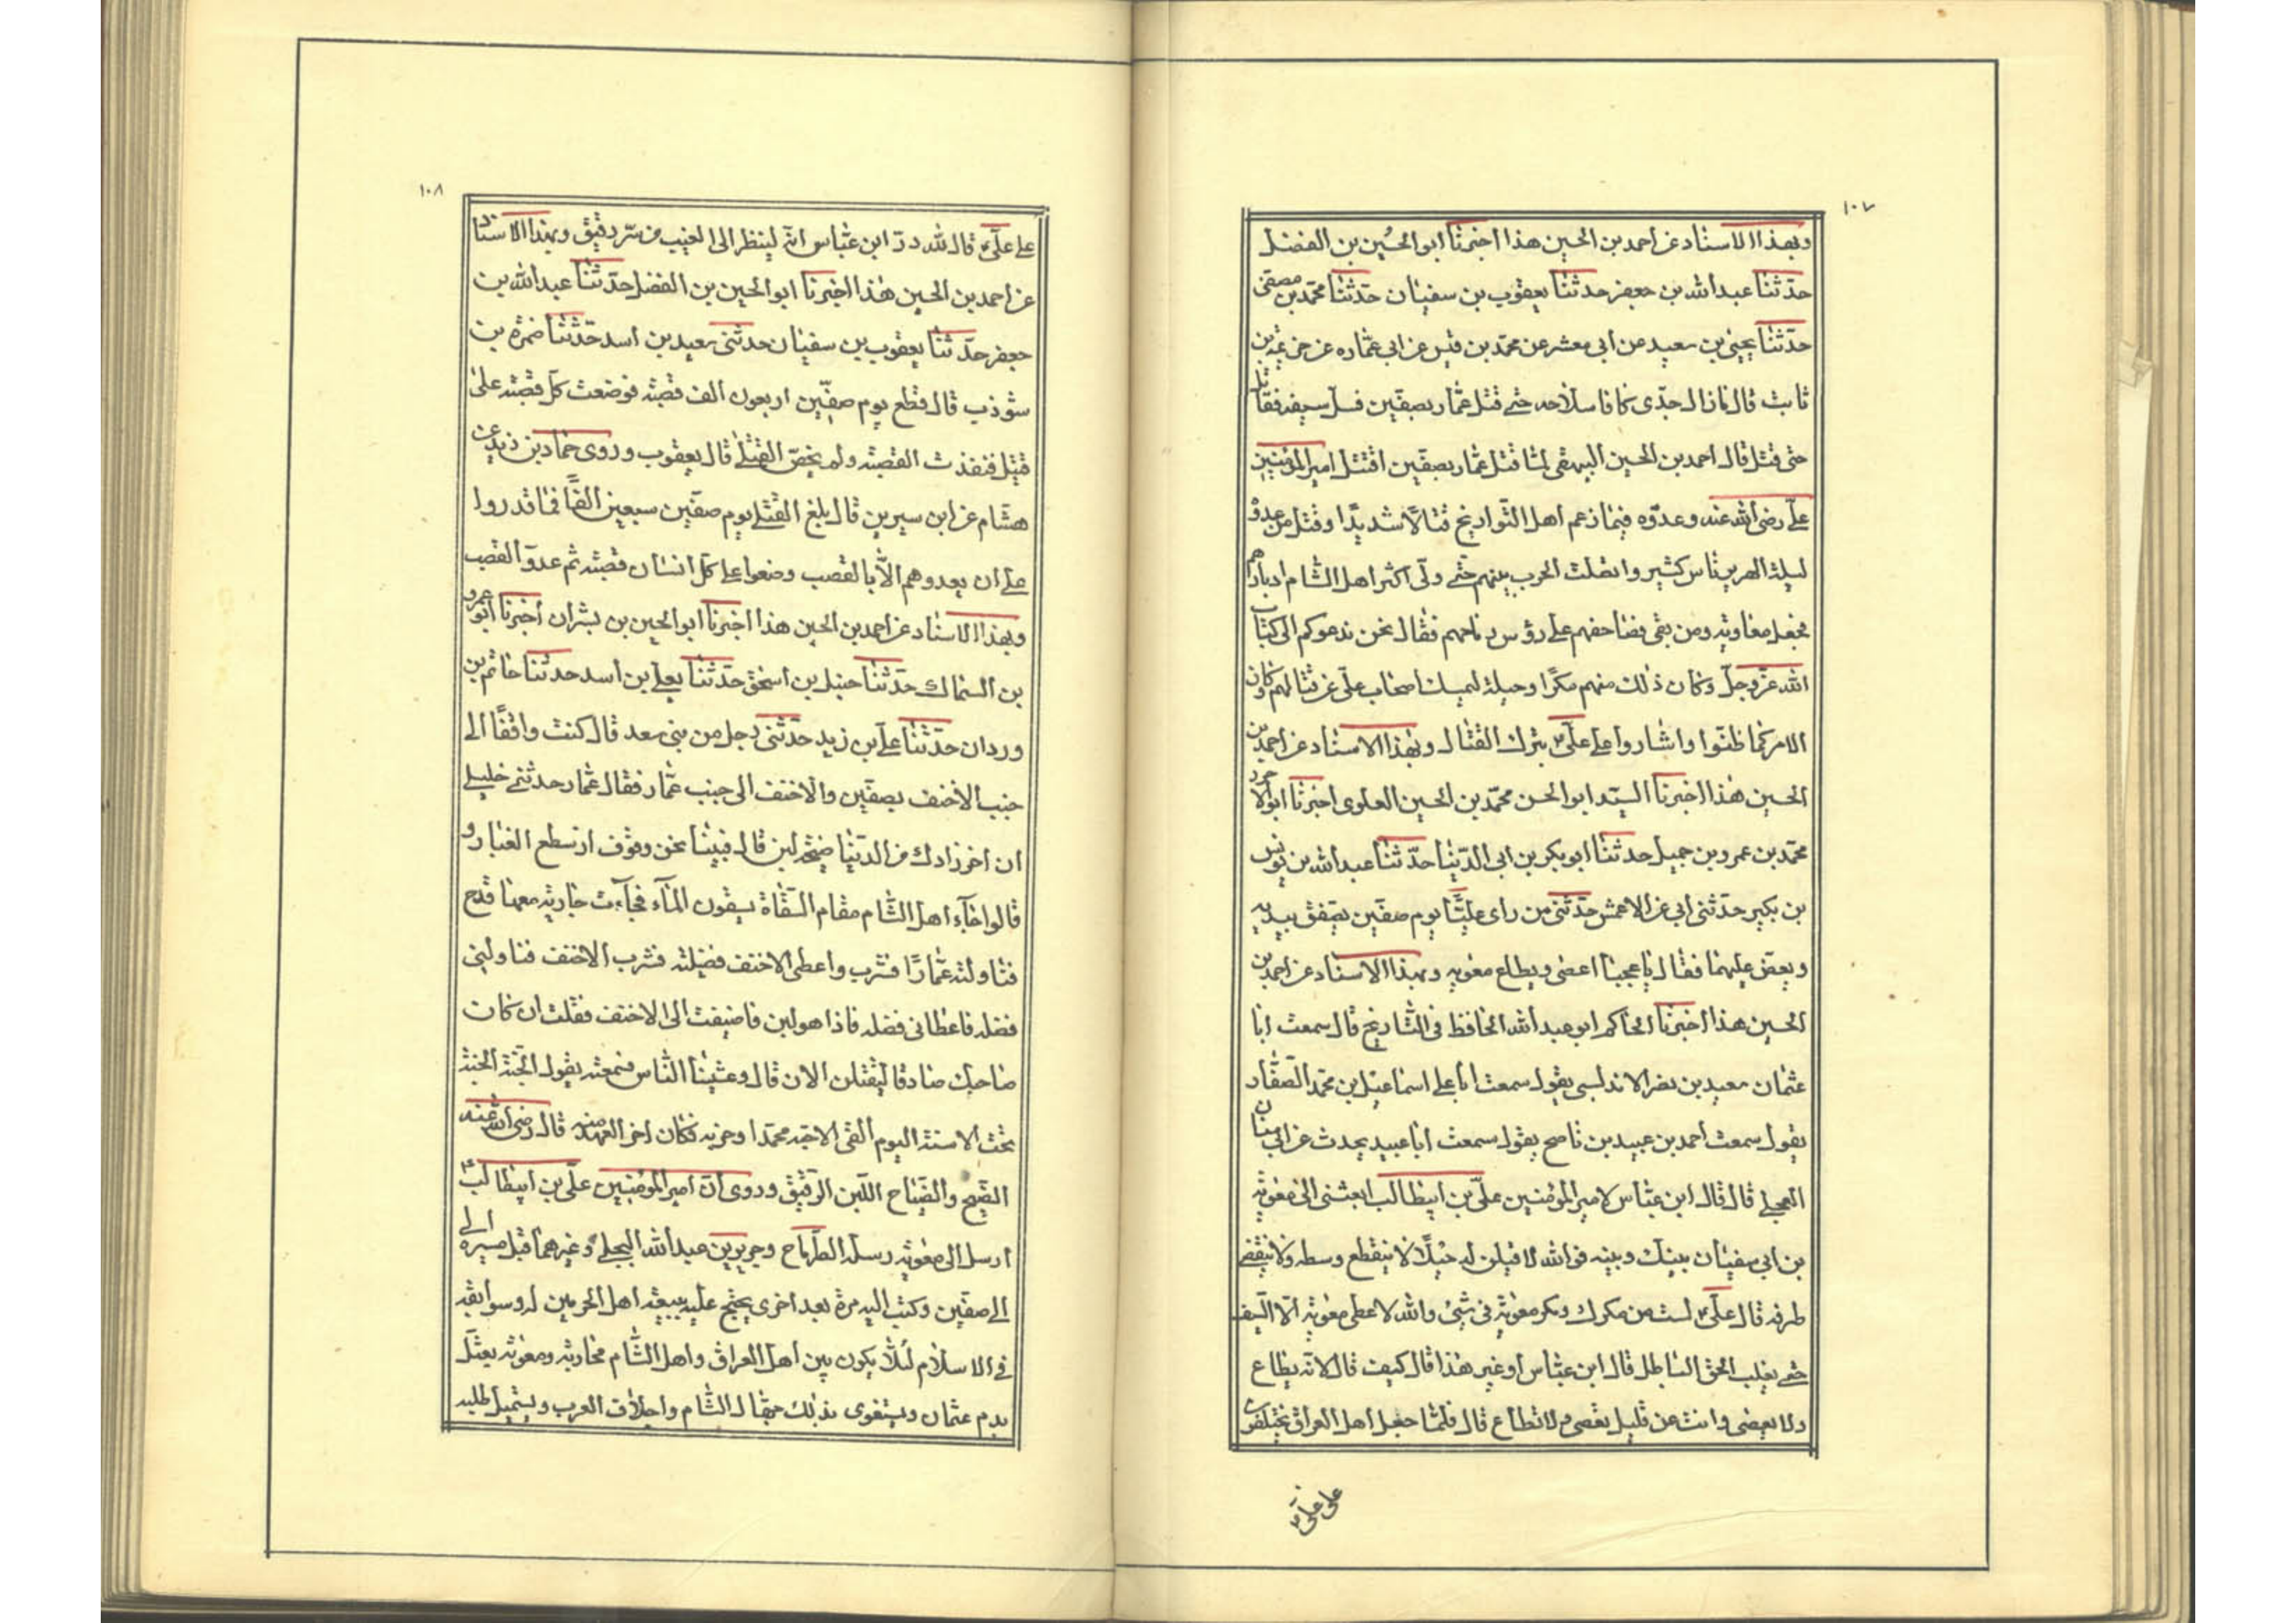 ١٠٧
وبهذا الاسناد عن احمد بن الحسين هذا اخبرنا ابو الحسين بن الفضل
حدثنا عبد الله بن جعفر حدثنا يعقوب بن سفيان حدثنا محمد بن مصفى
حدثنا يحيى بن سعيد عن أبي معشر عن محمد بن قيس عن ابي عماره عن خزيمة بن
ثابت قال ما زال جدى كافا سلاحه حتى قتل عمار بصفين فسل سيفه فقاتل
حتى قتل قال احمد بن الحسين البيهقي لما قتل عمار بصفين اقتتل امير المؤمنين
علي رضى الله عنه وعدوه فيما زعم اهل التواريخ قتالا شديدا وقتل من عدوه
ليلة الهرير ناس كثير واتصلت الحرب بينهم حتى ولى اكثر اهل الشام ادبارهم
فجعل معاوية ومن بقى مصاحفهم على رؤس رماحهم فقال نحن ندعوكم الى كتاب
الله عز وجل وكان ذلك منهم مكرا وحيلة ليميك اصحاب علي عن قتالهم وكان
الامر كما ظنوا واشاروا على علي بترك القتال وبهذا الاسناد عن احمد بن
الحسين هذا اخبرنا السيد ابو الحسن محمد بن الحسين العلوى اخبرنا ابو الاحرز
محمد بن عمر وبن جميل حدثنا ابو بكر بن ابى الدنيا حدثنا عبد الله بن يونس
بن بكير حدثنى ابي عن الاعمش حدثنى من راى عليا يوم صفين يصفق بيديه
ويعض عليهما فقال يا عجبا اعصى ويطاع معوية وبهذا الاسناد عن احمد بن
الحسين هذا اخبرنا الحاكم ابو عبد الله الحافظ فى التاريخ قال سمعت ابا
عثمان سعيد بن نصر الاندلسى يقول سمعت ابا على اسماعيل بن محمد الصفار
يقول سمعت أحمد بن عبيد بن ناصح يقول سمعت ابا عبيد يحدث عن ابى سنان
العجلى قال قال ابن عباس لامير المؤمنين علي بن ابيطالب ابعثنى الى معوية
بن ابي سفيان بينك وبينه فو الله لافتلن له حبلا لا ينقطع وسطه ولا ينقضى
طرفه قال على لست من مكرك ومكر معوية فى شئ والله لا عطى معوية الا السيف
حتى يغلب الحق الباطل قال ابن عباس أو غير هذا قال كيف قال لانه يطاع
ولا يعصى وانت عن قليل تعصى ولا تطاع قال فلما جعل اهل العراق يختلفون
على علي
١٠٨
على علي قال لله در ابن عباس انه لينظر الى الغيب من ستر دقيق وبهذا الاسناد
عن احمد بن الحسين هذا اخبرنا ابو الحسين بن الفضل حدثنا عبد الله بن
جعفر حدثنا يعقوب بن سفيان حدثنى سعيد بن أسد حدثنا ضمرة بن
شوذب قال قطع يوم صفين اربعون الف قصبة فوضعت كل قصبة على
قتيل فنفذت القصبة ولم يخص القتلى قال يعقوب وروى حماد بن زيد عن
هشام عن ابن سيرين قال بلغ القتلى يوم صفين سبعين الفا فما قدروا
على ان يعدوهم الا بالقصب وضعوا على كل انسان قصبة ثم عدوا القصب
وبهذا الاسناد عن احمد بن الحسين هذا اخبرنا ابو الحسين بن بشران أخبرنا ابو عمرو
بن السماك حدثنا حنبل بن اسحق حدثنا يعلى بن أسد حدثنا حاتم بن
وردان حدثنا على بن زيد حدثنى رجل من بنى سعد قال كنت واقفا الى
جنب الاحنف بصفين والاحنف الى جنب عمار فقال عمار حدثنى خليلى
ان اخر زادك من الدنيا ضيح لبن قال فبينا نحن وقوف اذ سطع الغبار و
قالوا جآء اهل الشام مقام السقاة يسقون المآء فجآءت جارية معها قدح
فناولته عمارا فشرب واعطى الاحنف فضيلته فشرب الاحنف فناولنى
فضله فاعطانى فضله فاذا هو لبن فاضيفت الى الاحنف فقلت ان كان
صاحبك صادقا ليقتلن الان قال وغشينا الناس فسمعته يقول الجنة الجنة
تحت الاسنة اليوم القى الاحبة محمدا وحزبه فكان اخر العهد منه قال رضى الله عنه
الضيح والضياح اللبن الرقيق وروى ان امير المؤمنين على بن ابيطالب
ارسل الى معوية رسله الطرماح وجرير بن عبد الله البجلى وغيرهما قبل مسيره الى
الى صفين وكتب اليه مرة بعد اخرى يحتج عليه ببيعة اهل الحرمين له وسوابقه
فى الاسلام لئلا يكون بين أهل العراق واهل الشام محاربة ومعوية يعتل
بدم عثمان ويستغوى بذلك جهال الشام واجلاف العرب ويستميل طلبه